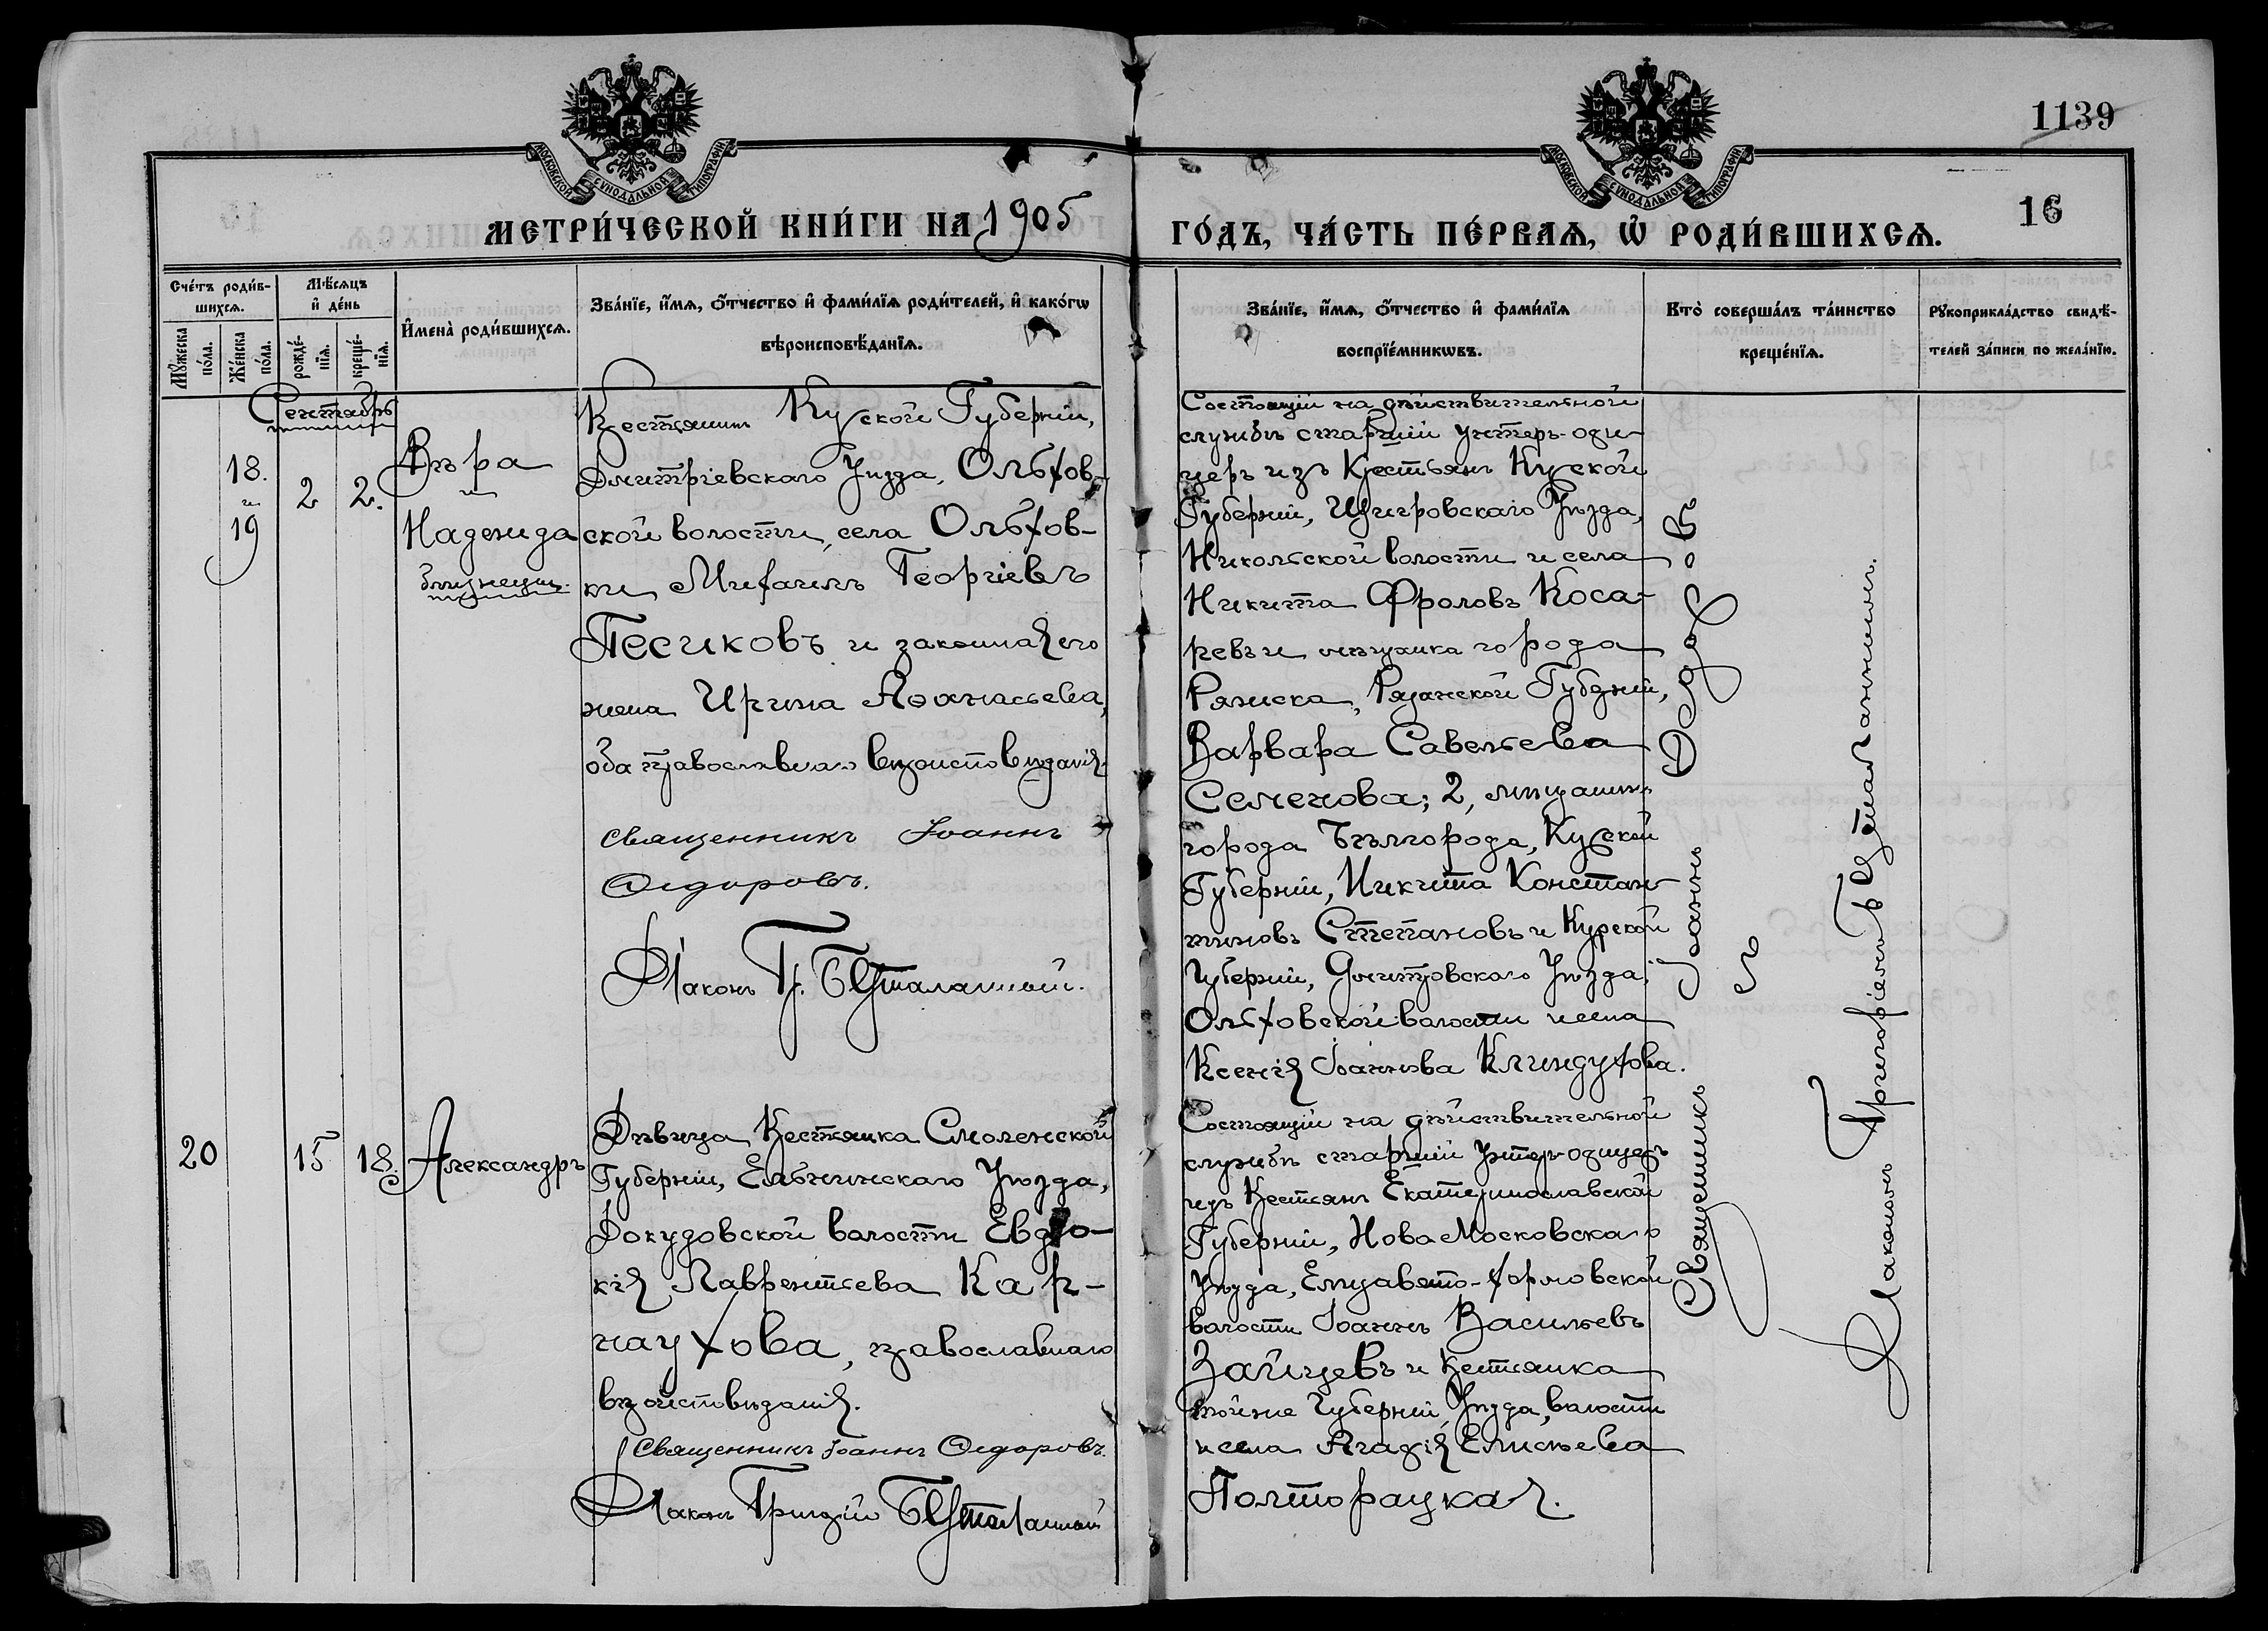 1139
16
МОСКОВСКОЙ СѴНОДАЛЬНОЙ ТИПОГРАФІИ
МОСКОВСКОЙ СѴНОДАЛЬНОЙ ТИПОГРАФІИ
МЕТРИ́ЧЕСКОЙ КНИ́ГИ НА 1905
ГО́ДЪ, ЧА́СТЬ ПЕ́РВАѦ, Ѡ҆ РОДИ́ВШИХСѦ.
Сче́тъ роди́в-
шихсѧ.
Мꙋ́жеска по́ла.
Же́нска по́ла.
Мѣ́сѧцъ
и҆ де́нь
рожде́-
нїѧ.
креще́-
нїѧ.
И҆мена̀ роди́вшихсѧ.
Зва́нїе, и҆́мѧ, ѻ҆́тчество и҆ фами́лїѧ роди́телей, и҆ како́гѡ
вѣроисповѣ́данїѧ.
Зва́нїе, и҆́мѧ, ѻ҆́тчество и҆ фами́лїѧ
воспрїе́мникѡвъ.
Кто̀ соверша́лъ та́инство
креще́нїѧ.
Рꙋкоприкла́дство свидѣ́-
телей за́писи по жела́нїю.
Сентябрь
18.
и
19
2
2.
Вѣра
и
Надежда
близнецы.
Крестьянинъ Курской Губерніи,
Дмитріевскаго Уѣзда, Ольхов-
ской волости, села Ольхов-
ки Михаилъ Георгіевъ
Песиковъ и законная его
жена Ирина Аѳанасьева,
оба православнаго вѣроисповѣданія.
Священникъ Іоаннъ
Ѳедоровъ.
Діаконъ Гр. Безталанный.
Состоящій на дѣйствительной
службѣ старшій унтеръ-офи-
церъ изъ Крестьянъ Курской
Губерніи, Щигровскаго Уѣзда,
Никольской волости и села
Никита Фроловъ Коса-
ревъ и мѣщанка города
Ряжска, Рязанской Губерніи,
Варвара Савельева
Семенова; 2, мѣщанинъ
города Бѣлгорода, Курской
Губерніи, Никита Констан-
тиновъ Степановъ и Курской
Губерніи, Дмитровскаго Уѣзда,
Ольховской волости и села
Ксенія Іоаннова Клиндухова.
20
15
18.
Александръ
Дѣвица Крестьянка Смоленской
Губерніи, Ельнинскаго Уѣзда,
Докудовской волости Евдо-
кія Лаврентьева Кар-
наухова, православнаго
вѣроисповѣданія.
Священникъ Іоаннъ Ѳедоровъ.
Діаконъ Григорій Безталанный
Состоящій на дѣйствительной
службѣ старшій Унтеръ-офицеръ
изъ Крестьянъ Екатеринославской
Губерніи, Ново Московскаго
Уѣзда, Елизавето-Хорошовской
волости Іоаннъ Васильевъ
Зайцевъ и Крестьянка
той же Губерніи, Уѣзда, волости
и села Агафія Елисѣева
Полторацкая.
Священникъ Іоаннъ Ѳедоровъ
съ
Діакономъ Григоріемъ Безталаннымъ.